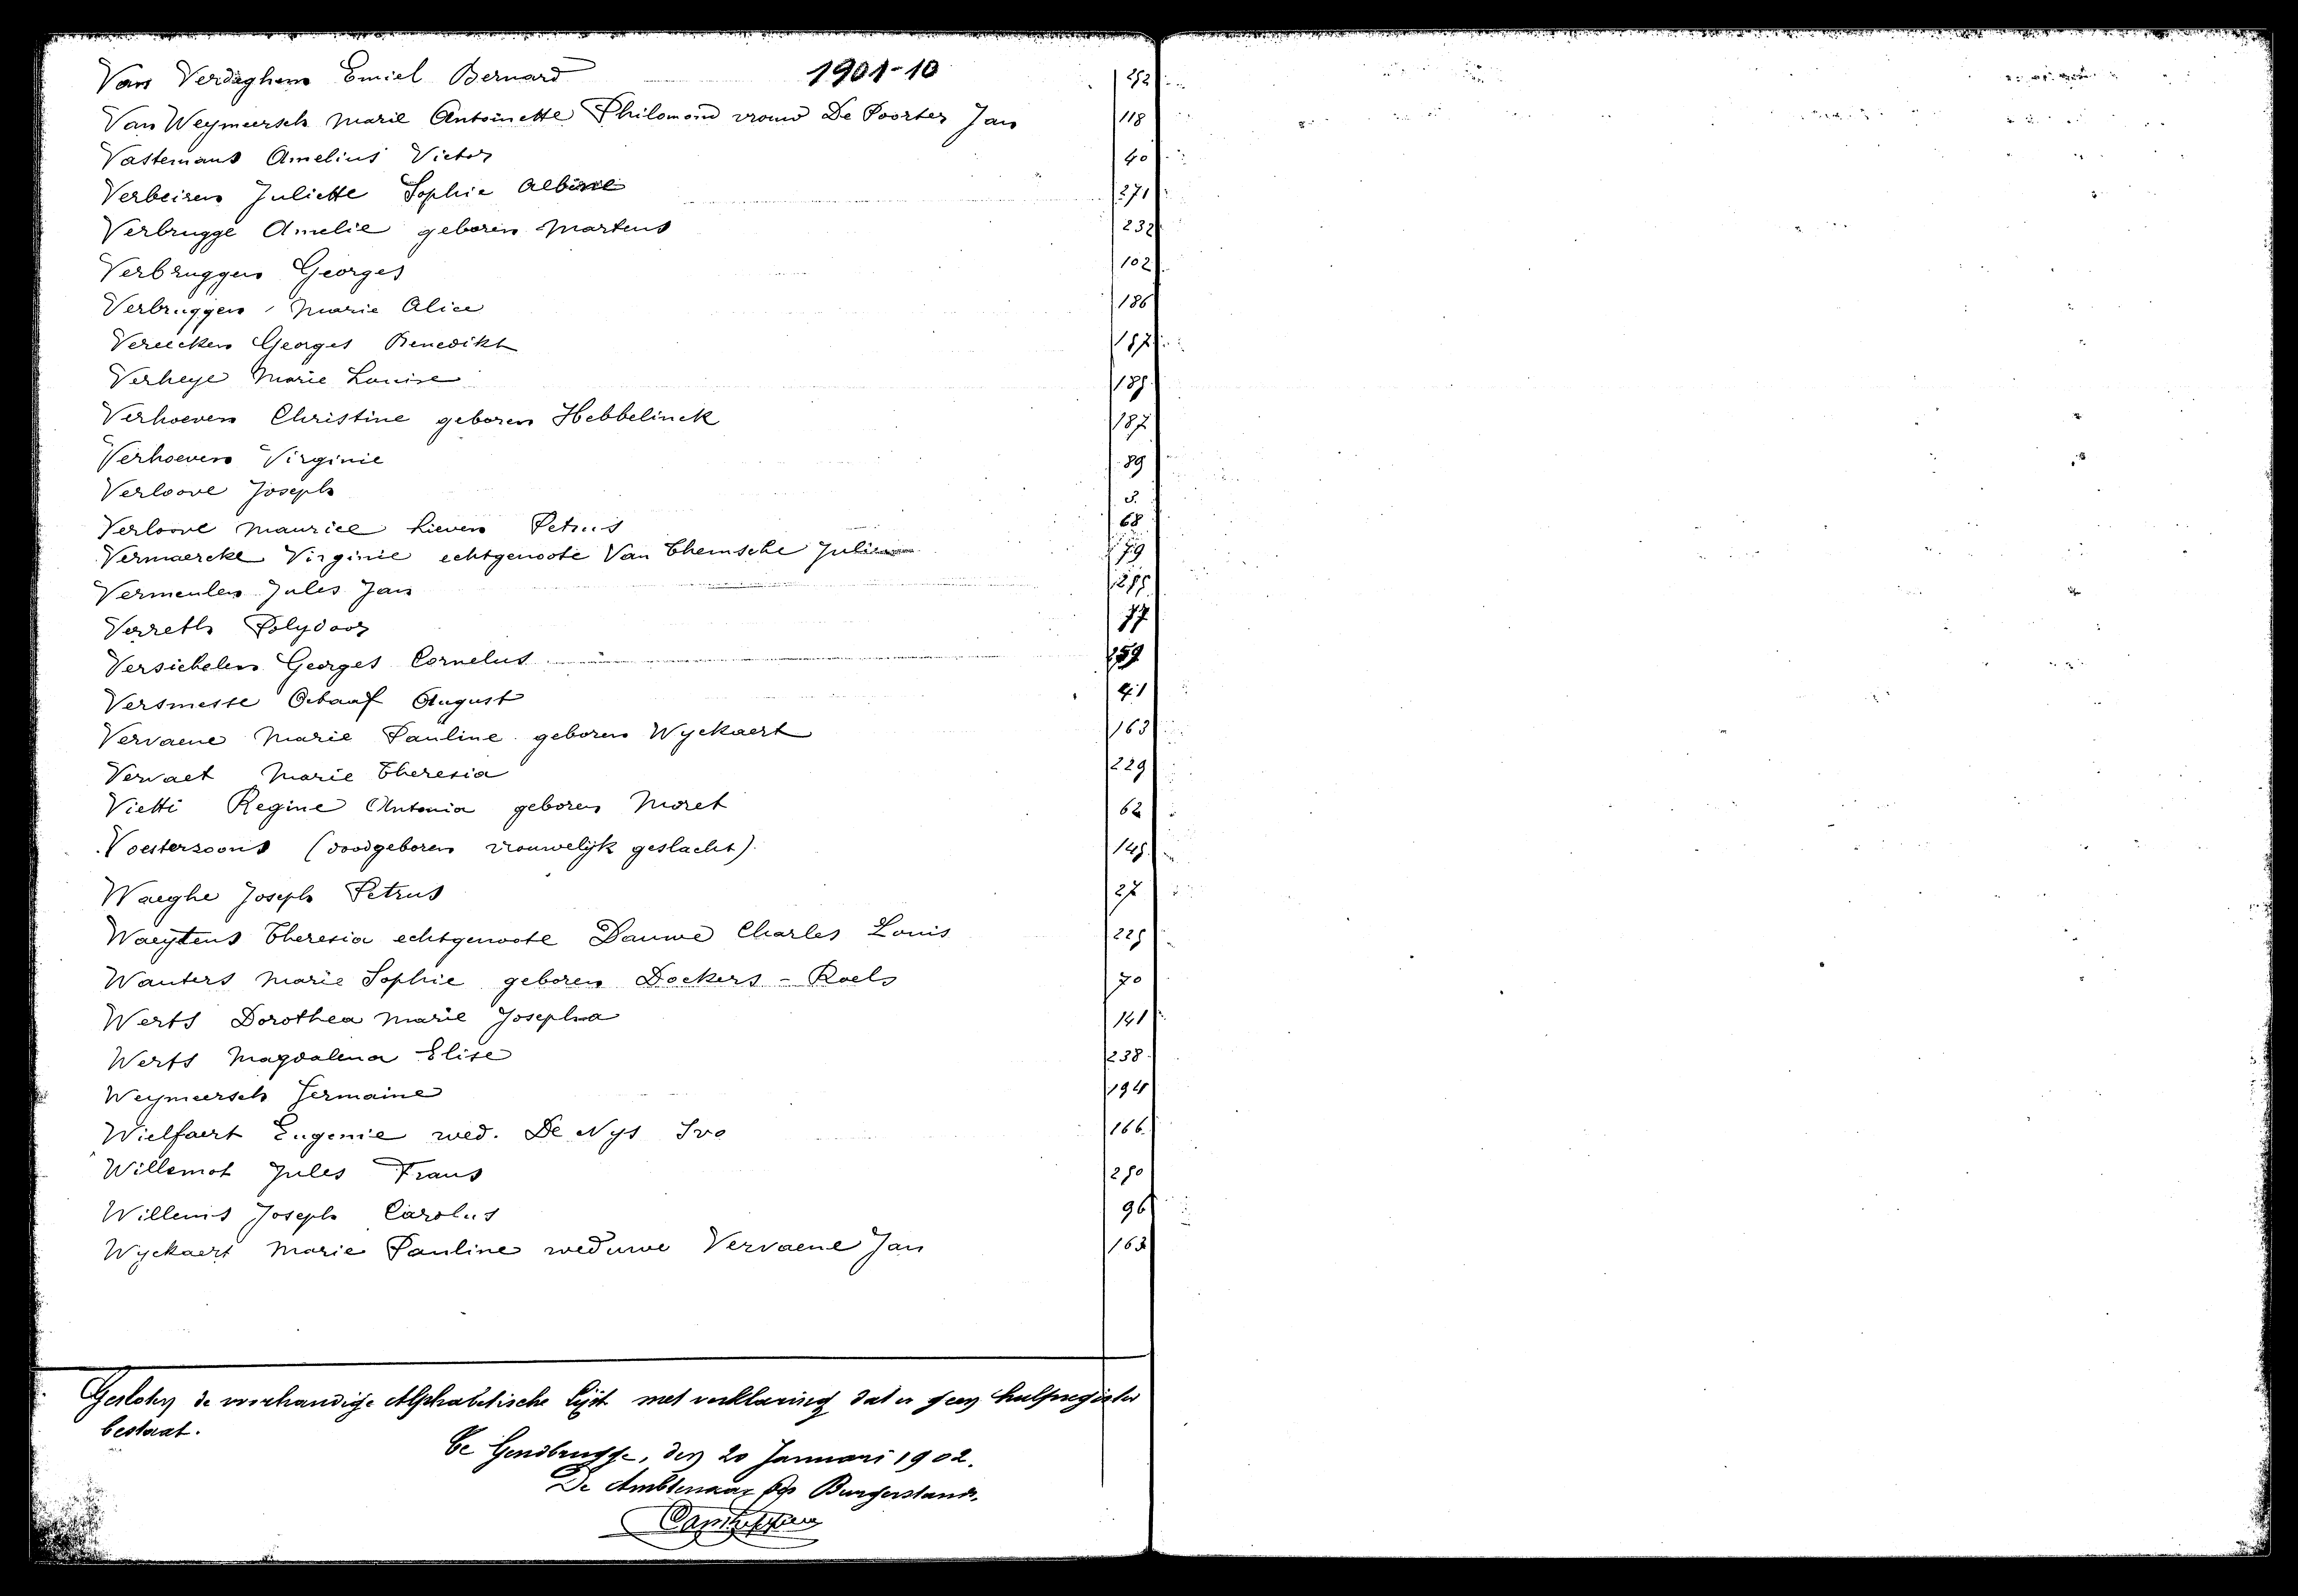 Van Verdeghem Emiel Bernard 1901-10 252
Van Weymeersch Marie Antoinette Philomond vrouw De Poorter Jan 118
Vastemans Amelius Victor 40
Verbeiren Juliette Sophie Albine 271
Verbrugge Amelie geboren Martens 232
Verbruggen Georges 102
Verbruggen Marie Alice 186
Vereecken Georges Benedikt 157
Verheye Marie Louise 185
Verhoeven Christine geboren Hebbelinck 187
Verhoeven Virginie 89
Verloove Joseph 3
Verloove Maurice Lieven Petrus 68
Vermaercke Virginie echtgenoote Van Themsche Julien 79
Vermeulen Jules Jan 255
Verreth Polydoor 77
Versichelen Georges Cornelus 259
Versmesse Octaaf August 41
Vervaene Marie Pauline geboren Wyckaert 163
Vervaet Marie Theresia 229
Vietti Regine Antonia geboren Moret 62
Voesterzoons (doodgeboren vrouwelijk geslacht) 145
Waeghe Joseph Petrus 27
Waeytens Theresia echtgenoote Dauwe Charles Louis 225
Wauters Marie Sophie geboren Dockers - Roels 70
Werts Dorothea Marie Josepha 141
Werts Magdalena Elise 238
Weymeersch Jermaine 194
Wielfaert Eugenie wed. De Nys Ivo 166
Willemot Jules Frans 250
Willems Joseph Carolus 96
Wyckaert Marie Pauline weduwe Vervaene Jan 163
Gesloten de voorhandige Alphabetische lijst met verklaring dat er geen hulpregister
bestaat.
Te Gendbrugge, den 20 Januari 1902.
De Ambtenaar des Burgerstands.